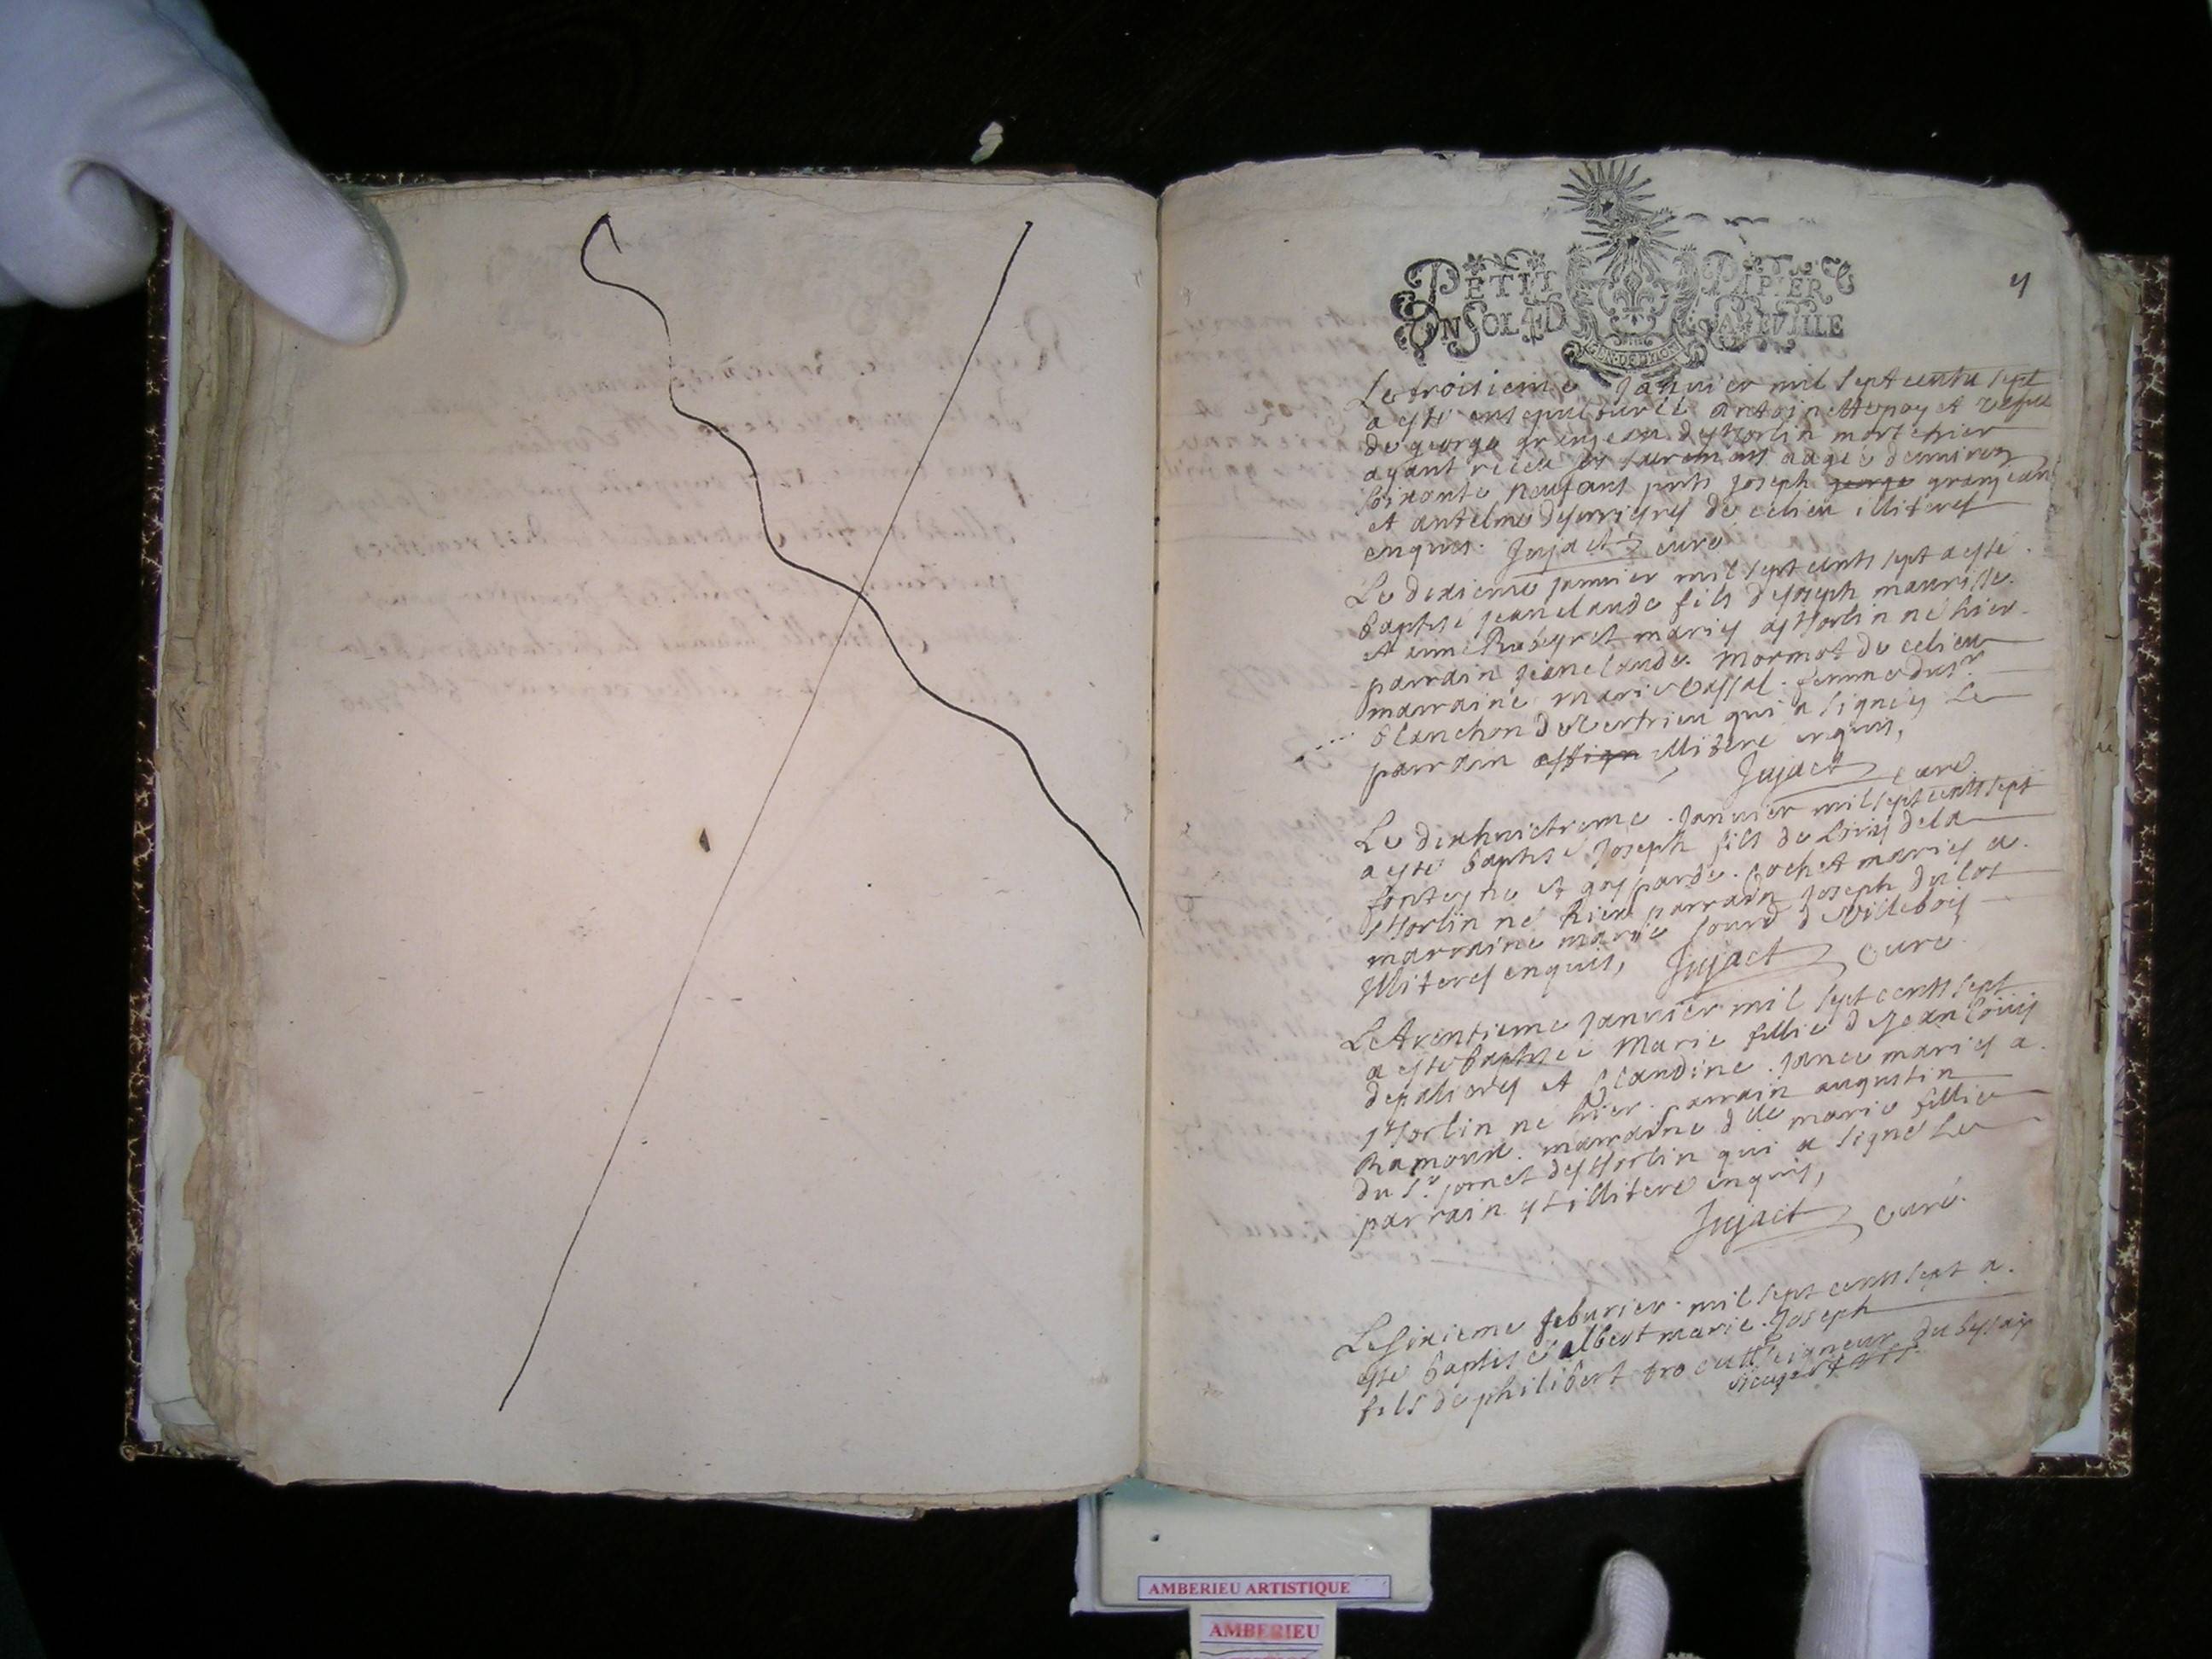 PETIT PAPIER
UN SOL 4 D LA FEUILLE
GEN. DE DIION
Le troisieme Janvier mil sept cents sept
a esté ensepulturéé antoinette pay et
de george granjean de st sorlin morte hier
ayant receu les sacremens aagée denviron
soixante neuf ans pnts joseph george granjean
et antelme de ce lieu illiteres
enquis. Jujact curé
Le dixieme janvier mil sept cents sept a esté
baptisé jean claude fils de joseph maurisse
et maries a st sorlin né hier
parrain jean claude mormot de ce lieu
marraine marie vassal femme du sr
blanchon de vertrieu qui a signés le
parrain illitere enquis,
Jujact curé
Le dixhuictieme Janvier mil sept cents sept
a esté baptisé joseph fils de Louis dela
fonteyne et gasparde cochet maries a
st sorlin né hier parrain joseph
marraine marie sourd de villebois
illiteres enquis, Jujact curé
Le trentieme janvier mil sept cents sept
a este baptizée Marie fillie de jean Louis
et Claudine jance maries a
st sorlin né hier parrain augustin
Ramoux marraine dlle marie fillie
du Sr. jornet de st sorlin qui a signé Le
parrain est illitere enquis,
Jujact curé
Le sixieme feburier mil sept cents sept a
esté baptisé albert marie Joseph
fils de philibert trocutt seigneur du bessay